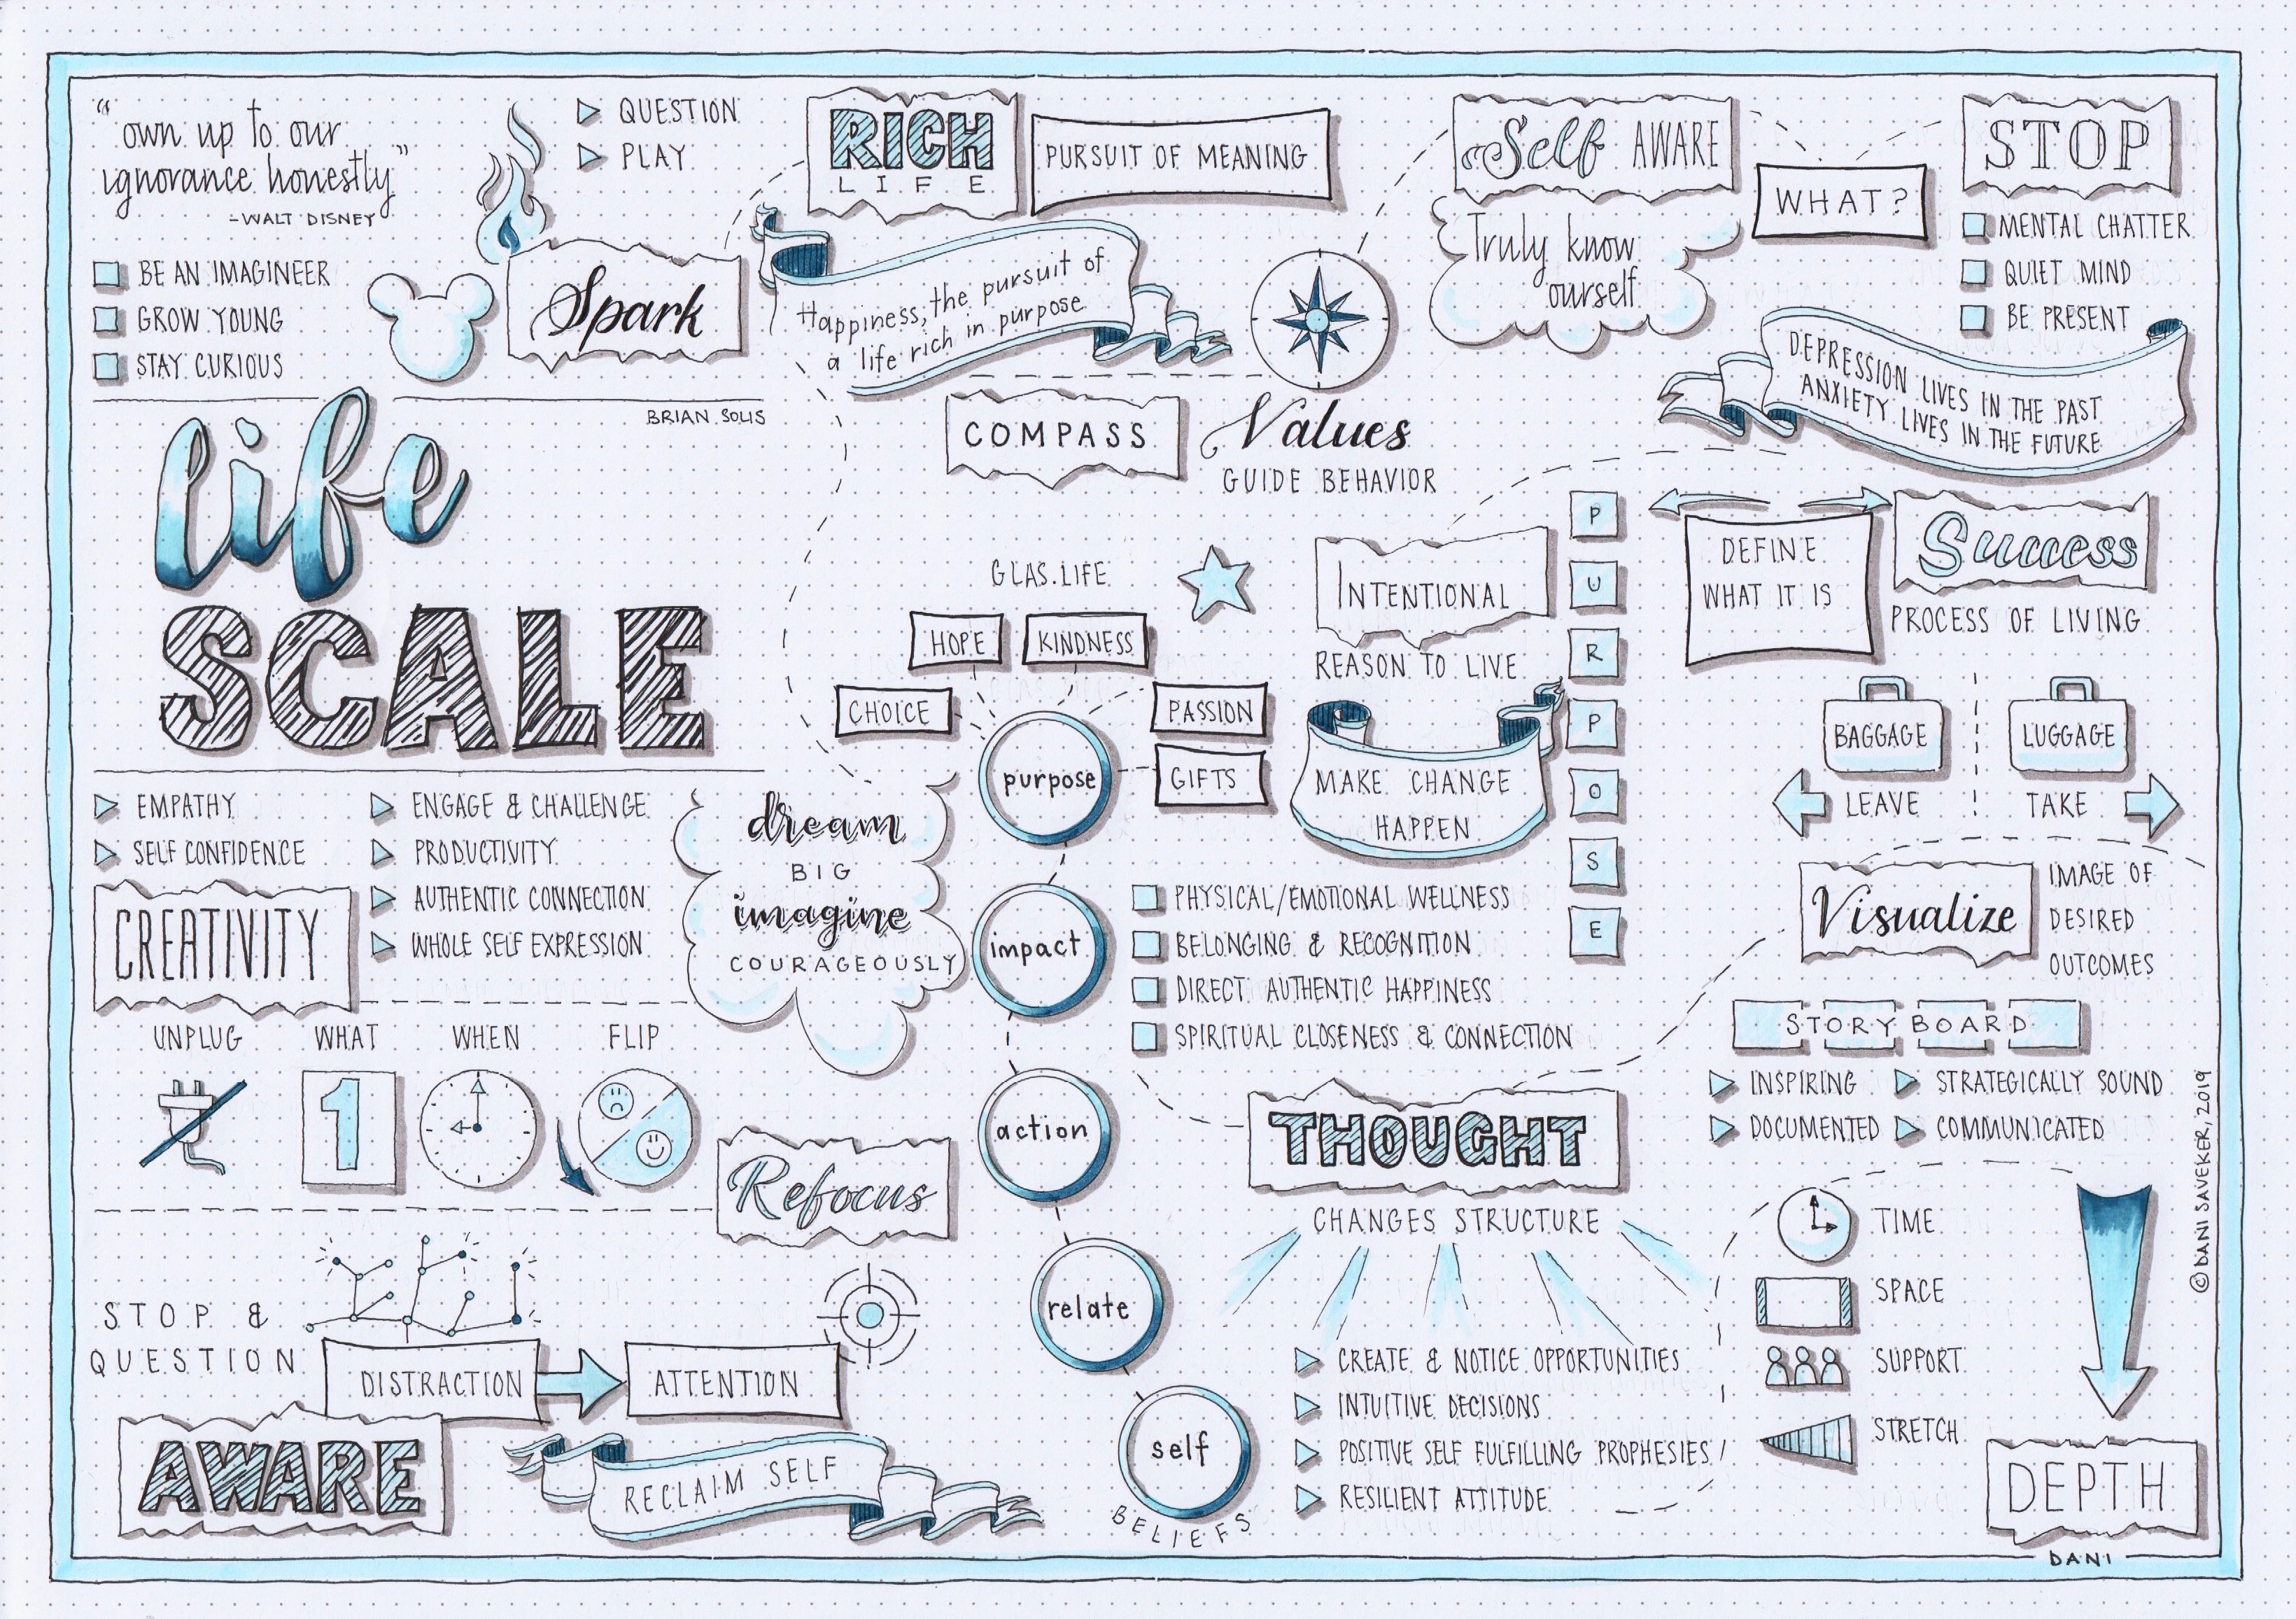 “own up to our
ignorance honestly”
-WALT DISNEY
BE AN IMAGINEER
GROW YOUNG
STAY CURIOUS
QUESTION
PLAY
Spark
RICH
LIFE
PURSUIT OF MEANING
Happiness; the pursuit of
a life rich in purpose
COMPASS
Values
GUIDE BEHAVIOR
Self AWARE
Truly know
ourself
WHAT?
STOP
MENTAL CHATTER
QUIET MIND
BE PRESENT
DEPRESSION LIVES IN THE PAST
ANXIETY LIVES IN THE FUTURE
BRIAN SOLIS
life
SCALE
EMPATHY
SELF CONFIDENCE
CREATIVITY
ENGAGE & CHALLENGE
PRODUCTIVITY
AUTHENTIC CONNECTION
WHOLE SELF EXPRESSION
dream
BIG
imagine
COURAGEOUSLY
GLAS.LIFE
HOPE
KINDNESS
CHOICE
PASSION
GIFTS
purpose
impact
action
relate
self
BELIEFS
INTENTIONAL
REASON TO LIVE
MAKE CHANGE
HAPPEN
P
U
R
P
O
S
E
PHYSICAL/EMOTIONAL WELLNESS
BELONGING & RECOGNITION
DIRECT AUTHENTIC HAPPINESS
SPIRITUAL CLOSENESS & CONNECTION
DEFINE
WHAT IT IS
Success
PROCESS OF LIVING
BAGGAGE
LUGGAGE
LEAVE
TAKE
Visualize
IMAGE OF
DESIRED
OUTCOMES
STORY BOARD
INSPIRING
STRATEGICALLY SOUND
DOCUMENTED
COMMUNICATED
UNPLUG
WHAT
WHEN
FLIP
1
Refocus
STOP &
QUESTION
DISTRACTION
ATTENTION
AWARE
RECLAIM SELF
THOUGHT
CHANGES STRUCTURE
CREATE & NOTICE OPPORTUNITIES
INTUITIVE DECISIONS
POSITIVE SELF FULFILLING PROPHESIES
RESILIENT ATTITUDE
TIME
SPACE
SUPPORT
STRETCH
DEPTH
©DANI SAVEKER, 2019
DANI